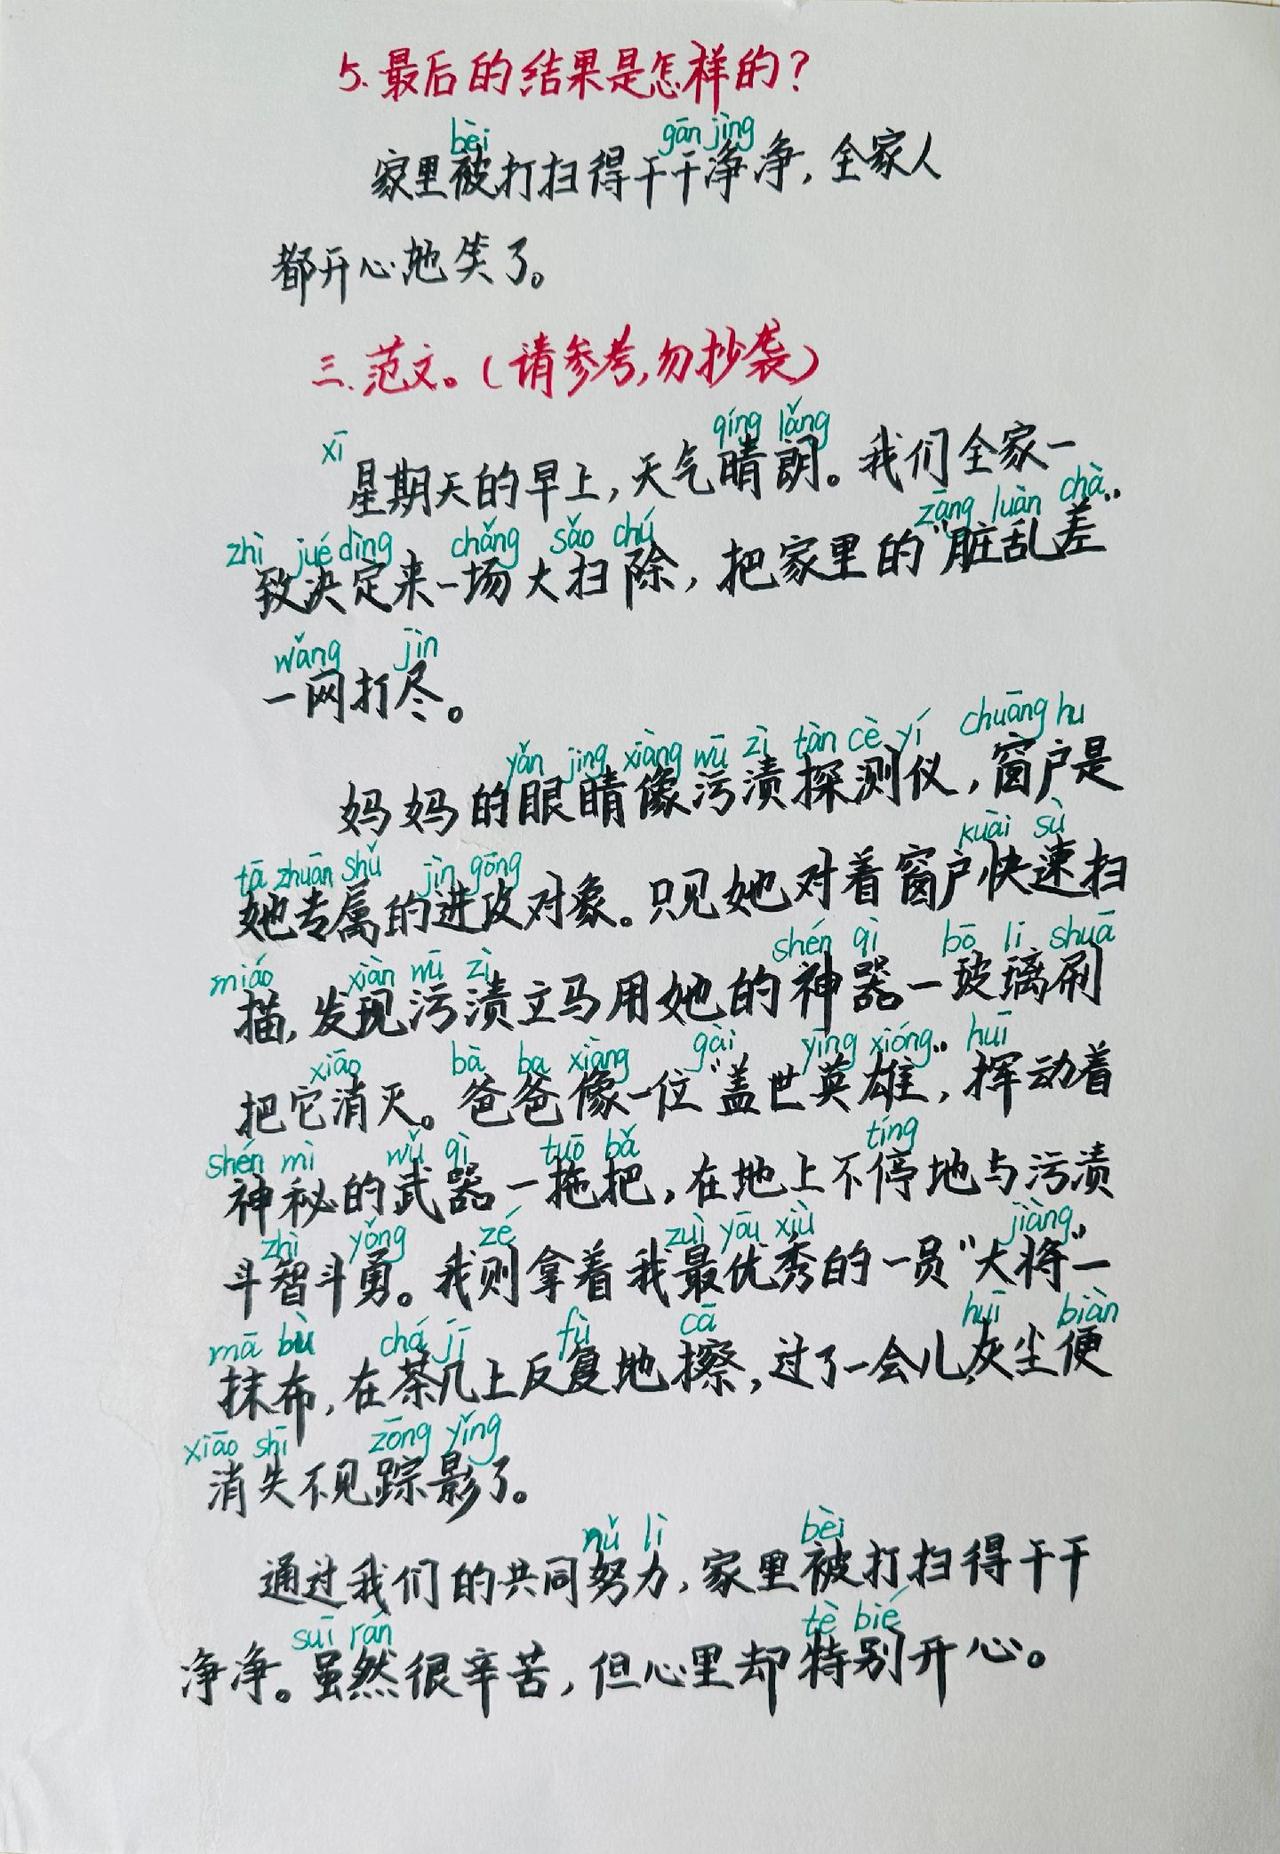 5.最后的结果是怎样的?
bèi gān jìng
家里被打扫得干干净净,全家人
都开心地笑了。
三.范文。(请参考,勿抄袭)
xī qíng lǎng
星期天的早上,天气晴朗。我们全家一
zhì jué dìng chǎng sǎo chú zāng luàn chà
致决定来一场大扫除,把家里的“脏乱差”
wǎng jìn
一网打尽。
yǎn jing xiàng wū zì tàn cè yí chuāng hu
妈妈的眼睛像污渍探测仪,窗户是
tā zhuān shǔ jìn gōng kuài sù
她专属的进攻对象。只见她对着窗户快速扫
miáo xiàn wū zì shén qì bō li shuā
描,发现污渍立马用她的神器一玻璃刷
xiāo bà ba xiàng gài yīng xióng huī
把它消灭。爸爸像一位“盖世英雄”,挥动着
shén mì wǔ qì tuō bǎ tíng
神秘的武器一拖把,在地上不停地与污渍
zhì yǒng zé zuì yōu xiù jiàng
斗智斗勇。我则拿着我最优秀的一员“大将”一
mā bù chá jī fù cā huī biàn
抹布,在茶几上反复地擦,过了一会儿,灰尘便
xiāo shī zōng yǐng
消失不见踪影了。
nǔ lì bèi
通过我们的共同努力,家里被打扫得干干
suī rán tè bié
净净。虽然很辛苦,但心里却特别开心。